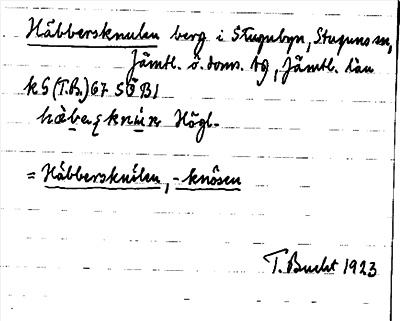 Häbbersknulen berg i Stugubyn, Stuguns sn,
Jämtl. ö. doms. tg, Jämtl. län
k5 (T.B.) 67 SÖ B1
Högl.
= Häbbersknülen, -knösen
T. Bucht 1923